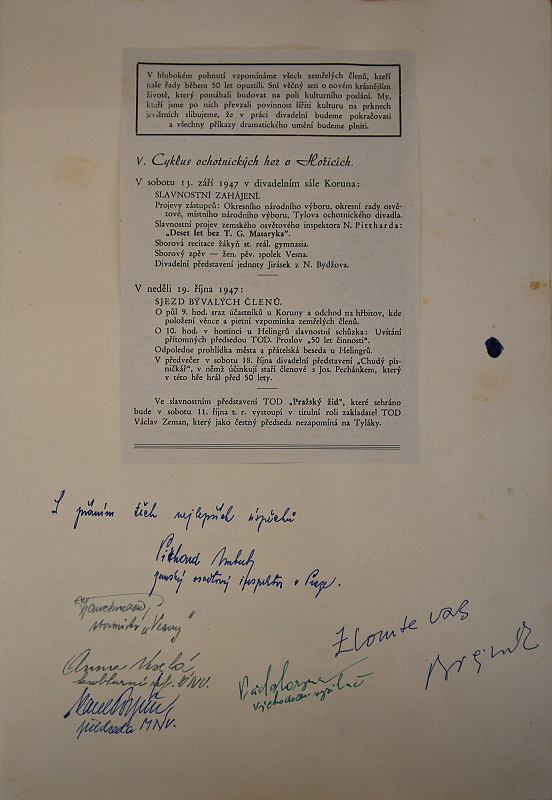 V hlubokém pohnutí vzpomínáme všech zemřelých členů, kteří
naše řady během 50 let opustili. Sní věčný sen o novém krásnějším
životě, který pomáhali budovat na poli kulturního poslání. My,
kteří jsme po nich převzali povinnost šířiti kulturu na prknech
jevištních slibujeme, že v práci divadelní budeme pokračovati
a všechny příkazy dramatického umění budeme plniti.
V. Cyklus ochotnických her v Hořicích.
V sobotu 13. září 1947 v divadelním sále Koruna:
SLAVNOSTNÍ ZAHÁJENÍ.
Projevy zástupců: Okresního národního výboru, okresní rady osvě-
tové, místního národního výboru, Tylova ochotnického divadla.
Slavnostní projev zemského osvětového inspektora N. Pittharda:
„Deset let bez T. G. Masaryka".
Sborová recitace žákyň st. reál. gymnasia.
Sborový zpěv — žen. pěv. spolek Vesna.
Divadelní představení jednoty Jirásek z N. Bydžova.
V neděli 19. října 1947:
SJEZD BÝVALÝCH ČLENŮ.
O půl 9. hod. sraz účastníků u Koruny a odchod na hřbitov, kde
položení věnce a pietní vzpomínka zemřelých členů.
O 10. hod. v hostinci u Helingrů slavnostní schůzka: Uvítání
přítomných předsedou TOD. Proslov „50 let činnosti".
Odpoledne prohlídka města a přátelská beseda u Helingrů.
V předvečer v sobotu 18. října divadelní představení „Chudý pís-
ničkář", v němž účinkují staří členové s Jos. Pechánkem, který
v této hře hrál před 50 lety.
Ve slavnostním představení TOD „Pražský žid", které sehráno
bude v sobotu 11. října t. r. vystoupí v titulní roli zakladatel TOD
Václav Zeman, který jako čestný předseda nezapomíná na Tyláky.
S přáním těch nejlepších úspěchů
zemský osvětový inspektor v Praze.
„Vesny"
Zlomte vaz
Anna Veselá,
kulturní ref. ONV.
předseda MNV.